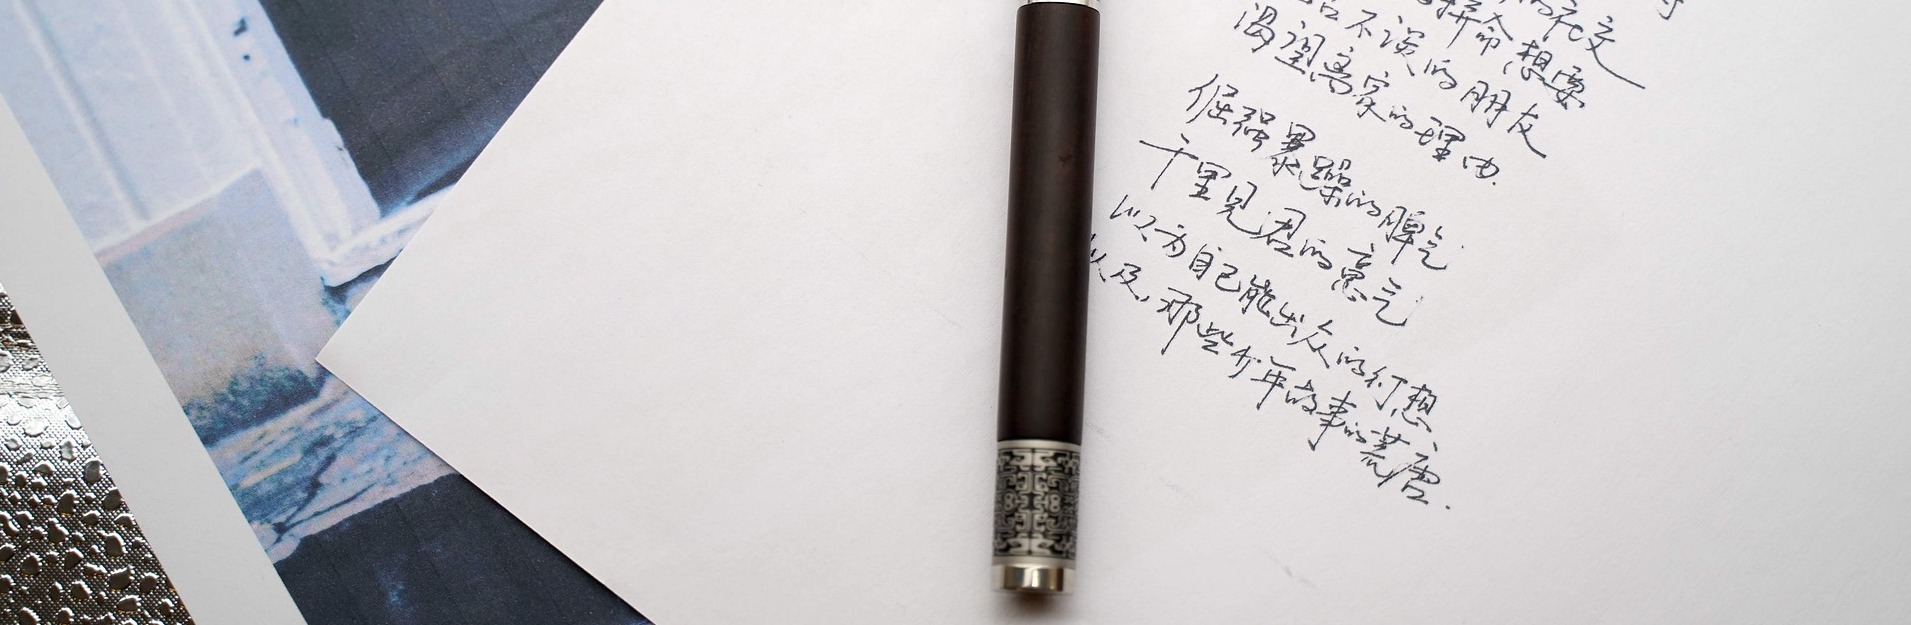 的社交
拼命想要
话不谈的朋友
渴望离家的理由.
倔强暴躁的脾气
千里见君的意气
以为自己能出众的幻想、
以及,那些少年故事的荒唐.